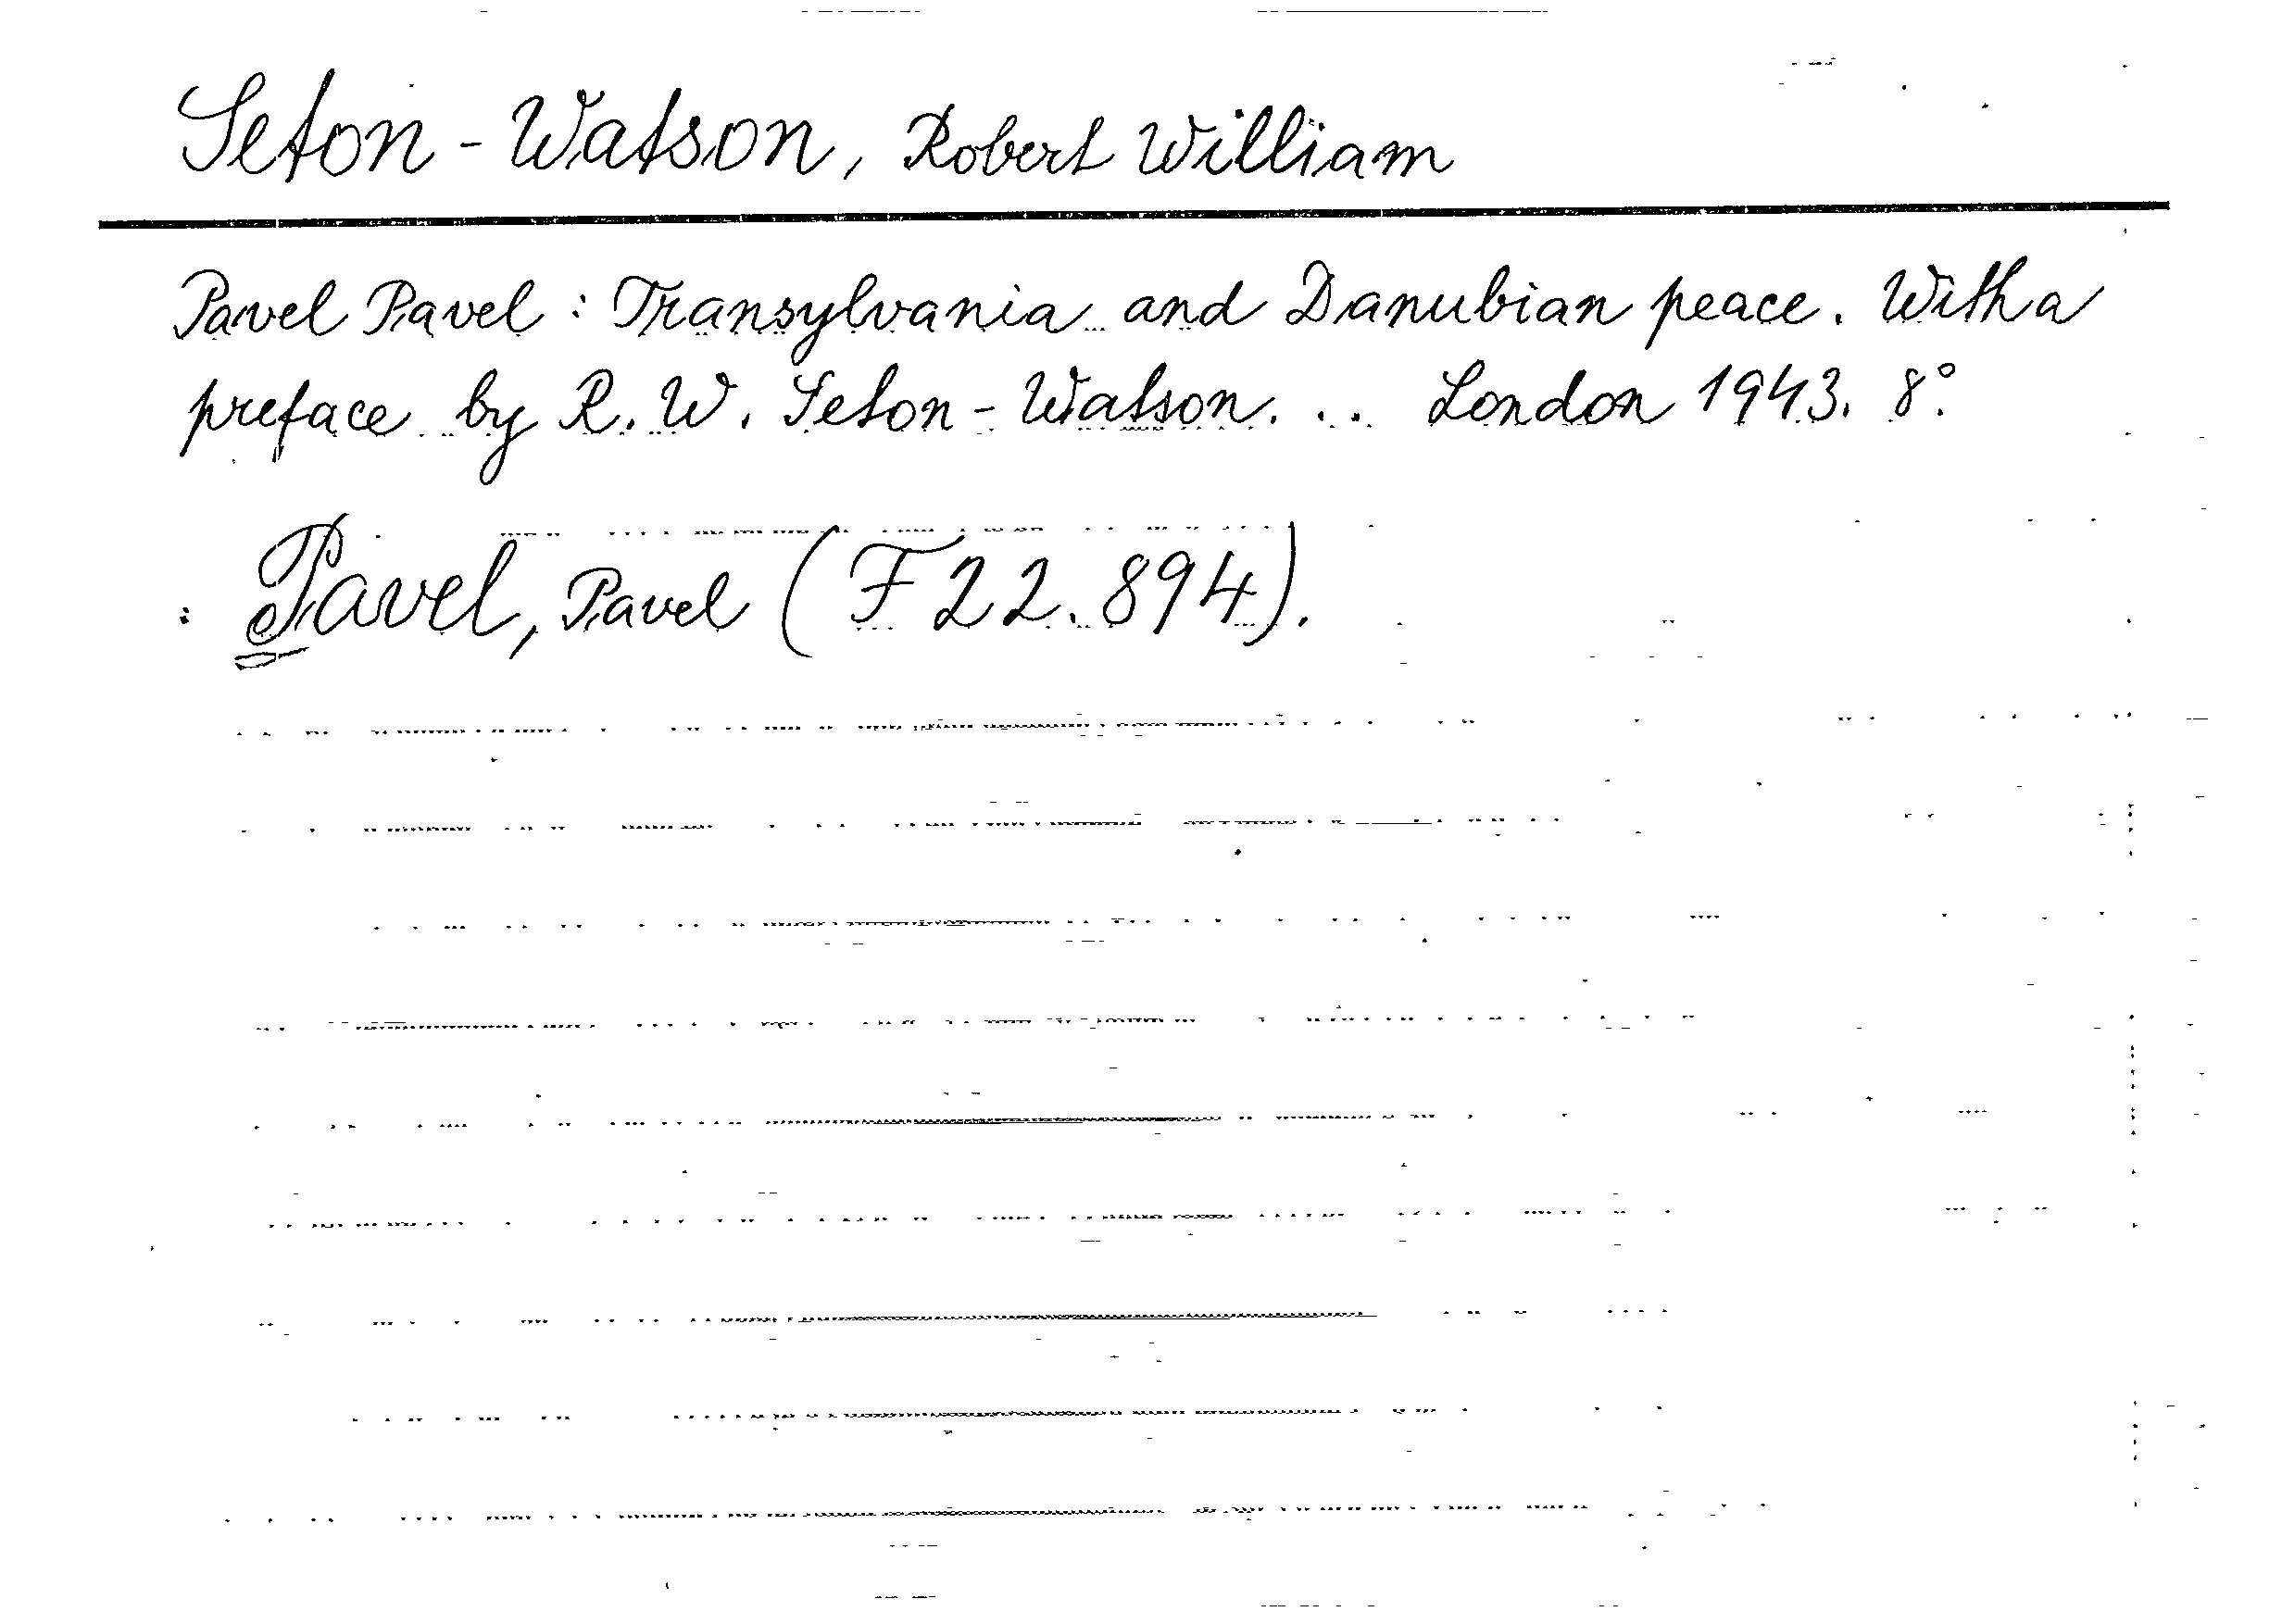 Seton-Watson, Robert William
Pavel Pavel: Transylvania and Danubian peace. With a
preface by R. W. Seton-Watson... London 1943. 8°.
: Pavel, Pavel (F 22.894).